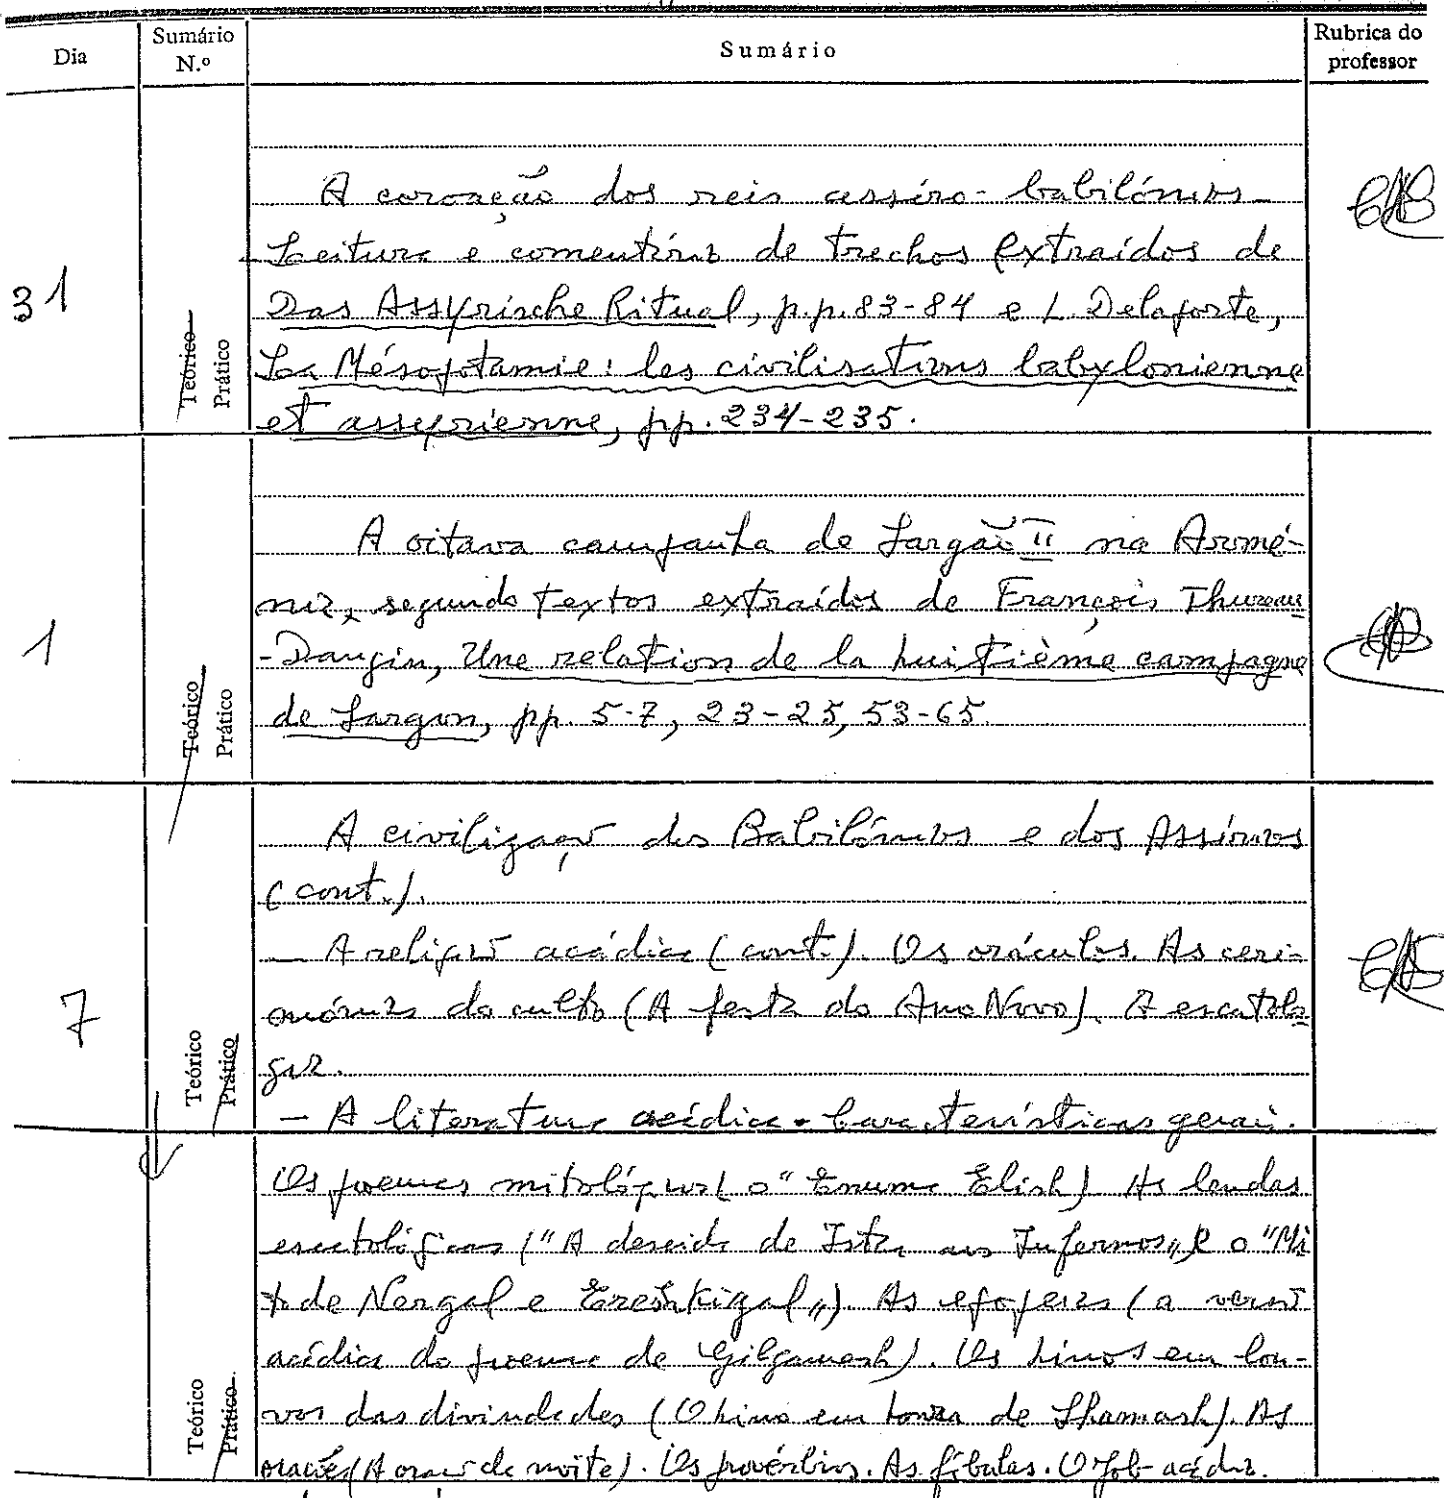 Dia Sumário N.º Sumário Rubrica do professor
A coroação dos reis assíro-babilónios -
Leitura e comentários de trechos extraídos de
31 Das Assyrische Ritual, p.p. 83-84 e L. Delaporte,
La Mésopotamie: les civilisations babylonienne
et assyrienne, pp. 234-235.
Teórico
Prático
A oitava campanha de Sargão II na Armé-
nia, segundo textos extraídos de François Thureau
1 -Dangin, Une relation de la huitième campagne
de Sargon, pp. 5-7, 23-25, 53-65.
Teórico
Prático
A civilização dos Babilónios e dos Assírios
(cont.).
— A religião acádica (cont.). Os oráculos. As ceri-
7 mónias do culto (A festa do Ano Novo). A escatolo
gia.
— A literatura acádica. Características gerais.
Teórico
Prático
Os poemas mitológicos (o "Enuma Elish). As lendas
escatológicas ("A descida de Istar aos Infernos" e o "Mi
to de Nergal e Ereshkigal"). As epopeias (a versão
acádica do poema de Gilgamesh). Os hinos em lou-
vor das divindades (O hino em honra de Shamash). As
orações (A oração de noite). Os provérbios. As fábulas. O Job acádico.
Teórico
Prático